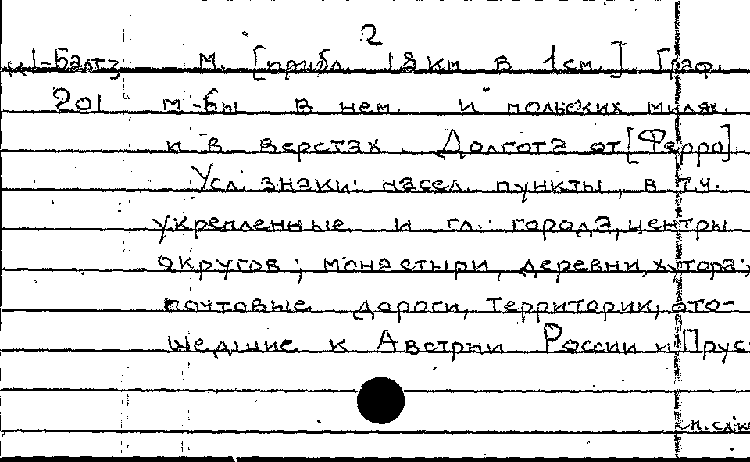 2
М. [прибл. 18 км в 1 см.] Граф.
201 м-бы в нем. и польских милях
и в верстах. Долгота от [Ферро]
Усл. знаки: насел. пункты, в т.ч.
укрепленные и гл.: города, центры
округов; монастыри, деревни, хутора;
почтовые дороги, территории, ото-
шедшие к Австрии России и Прус